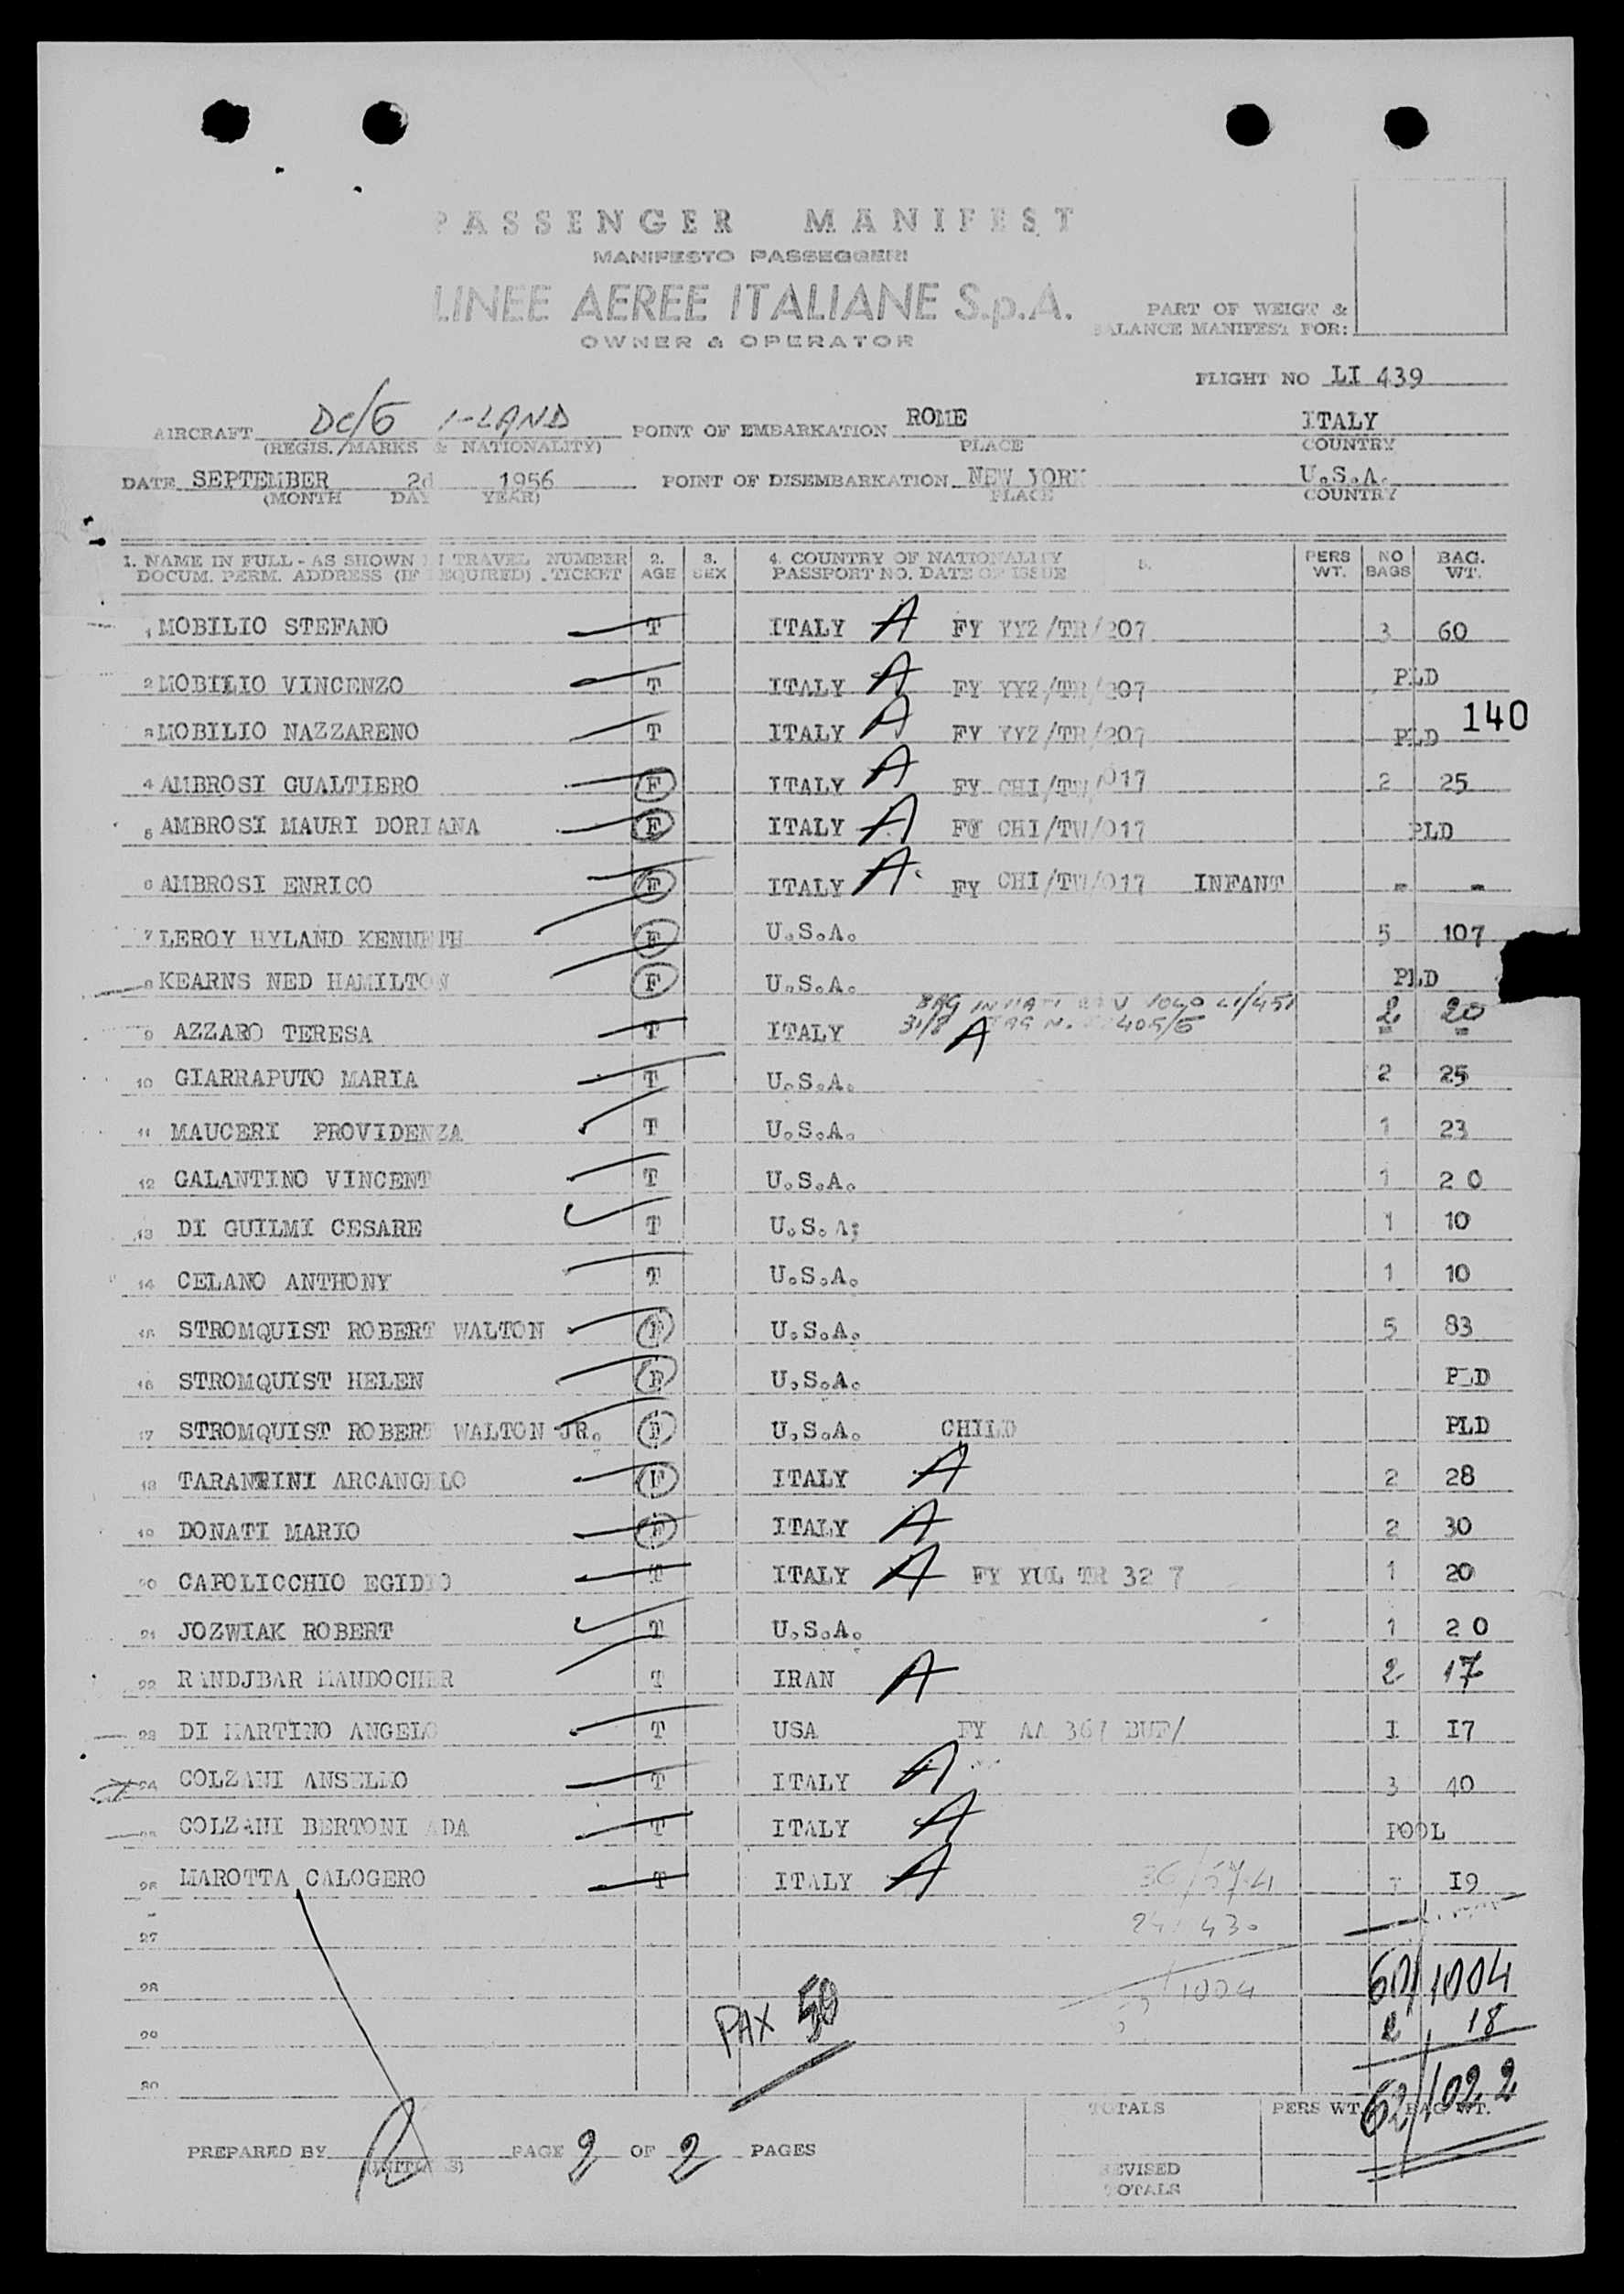 PASSENGER MANIFEST
MANIFESTO PASSEGGERI
LINEE AEREE ITALIANE S.p.A.
OWNER & OPERATOR
PART OF WEIGT &
BALANCE MANIFEST FOR:
FLIGHT NO LI 439
AIRCRAFT DC/6 I-LAND POINT OF EMBARKATION ROME ITALY
(REGIS. MARKS & NATIONALITY) PLACE COUNTRY
DATE SEPTEMBER 2d 1956 POINT OF DISEMBARKATION NEW YORK U.S.A.
(MONTH DAY YEAR) PLACE COUNTRY
1. NAME IN FULL - AS SHOWN IN TRAVEL NUMBER 2. 3. 4. COUNTRY OF NATIONALITY 5. PERS NO BAG.
DOCUM. PERM. ADDRESS (IF REQUIRED) . TICKET AGE SEX PASSPORT NO. DATE OF ISSUE WT. BAGS WT.
1 MOBILIO STEFANO T ITALY A FY YYZ/TR/207 3 60
2 MOBILIO VINCENZO T ITALY A FY YYZ/TR/207 PLD
3 MOBILIO NAZZARENO T ITALY A FY YYZ/TR/207 PLD 140
4 AMBROSI GUALTIERO F ITALY A FY CHI/TW/017 2 25
5 AMBROSI MAURI DORIANA F ITALY A FY CHI/TW/017 PLD
6 AMBROSI ENRICO F ITALY A. FY CHI/TW/017 INFANT - -
7 LEROY HYLAND KENNETH F U.S.A. 5 107
8 KEARNS NED HAMILTON F U.S.A. PLD
BAG 1040 LI/451
9 AZZARO TERESA T ITALY 31/8 A 405/6 2 20
10 GIARRAPUTO MARIA T U.S.A. 2 25
11 MAUCERI PROVIDENZA T U.S.A. 1 23
12 GALANTINO VINCENT T U.S.A. 1 2 0
13 DI GUILMI CESARE T U.S.A; 1 10
14 CELANO ANTHONY T U.S.A. 1 10
15 STROMQUIST ROBERT WALTON F U.S.A. 5 83
16 STROMQUIST HELEN F U.S.A. PLD
17 STROMQUIST ROBERT WALTON JR. F U.S.A. CHILD PLD
18 TARANTINI ARCANGELO F ITALY A 2 28
19 DONATI MARIO F ITALY A 2 30
20 CAPOLICCHIO EGIDIO T ITALY A FY YUL TR 32 7 1 20
21 JOZWIAK ROBERT T U.S.A. 1 2 0
22 RANDJBAR MANDOCHER T IRAN A 2 17
23 DI MARTINO ANGELO T USA FY AA 367 BUF/ I I7
24 COLZANI ANSELMO T ITALY A 3 40
25 COLZANI BERTONI ADA T ITALY A POOL
26 MAROTTA CALOGERO T ITALY A I I9
27 24 430
28 1004 60/1004
29 PAX 50 2 18
30 62/1022
TOTALS PERS WT. BAG WT.
PREPARED BY (INITIALS) PAGE 2 OF 2 PAGES
REVISED
TOTALS